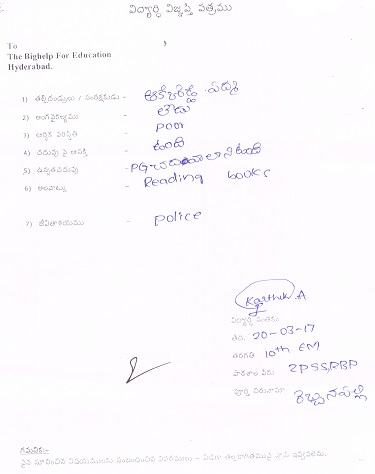 విద్యార్థి విజ్ఞప్తి పత్రము
To
The Bighelp For Education
Hyderabad.
1) తల్లిదండ్రులు / సంరక్షకుడు -
2) అంగవైకల్యము - లేదు
3) ఆర్థిక పరిస్థితి - poor
4) చదువు పై ఆసక్తి - ఉంది
5) ఉన్నతచదువు - PG చదవాలని ఉంది
6) అలవాట్లు - Reading books
7) జీవితాశయము - police
Karthik A
విద్యార్థి సంతకం
తేది. 20-03-17
తరగతి 10th EM
పాఠశాల పేరు ZPSS,RBP
పూర్తి చిరునామా రెబ్బనపల్లి
గమనిక:-